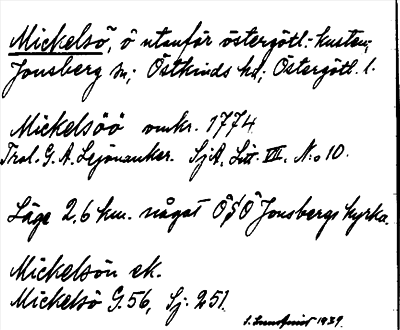 Mickelsö, ö utanför östergötl:- kusten;
Jonsberg sn; Östkinds hd; Östergötl. l.
Mickelsöö omkr. 1774
Trol. G. A. Lejonanker. SjA, Litt. VII. N:o 10.
Läge 2,6 km. något ÖSÖ Jonsbergs kyrka.
Mickelsön ek.
Mickelsö G. 56, Sj. 251.
1939.